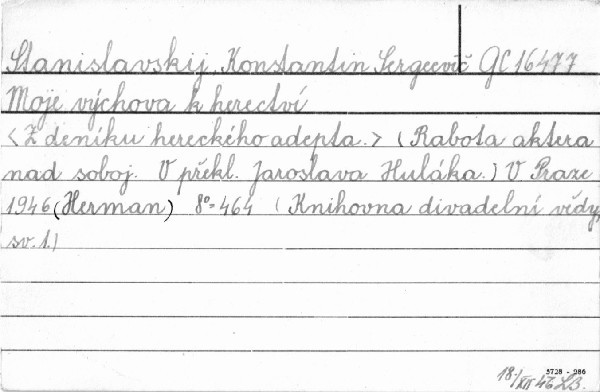 Stanislavskij, Konstantin Sergeevič GC 16477
Moje výchova k herectví
<Z deníku hereckého adepta.> (Rabota aktera
nad soboj. V překl. Jaroslava Huláka.) V Praze
1946 (Herman) 8°=464 (Knihovna divadelní vědy,
sv. 1.)
5728 - 086
18./XII 46